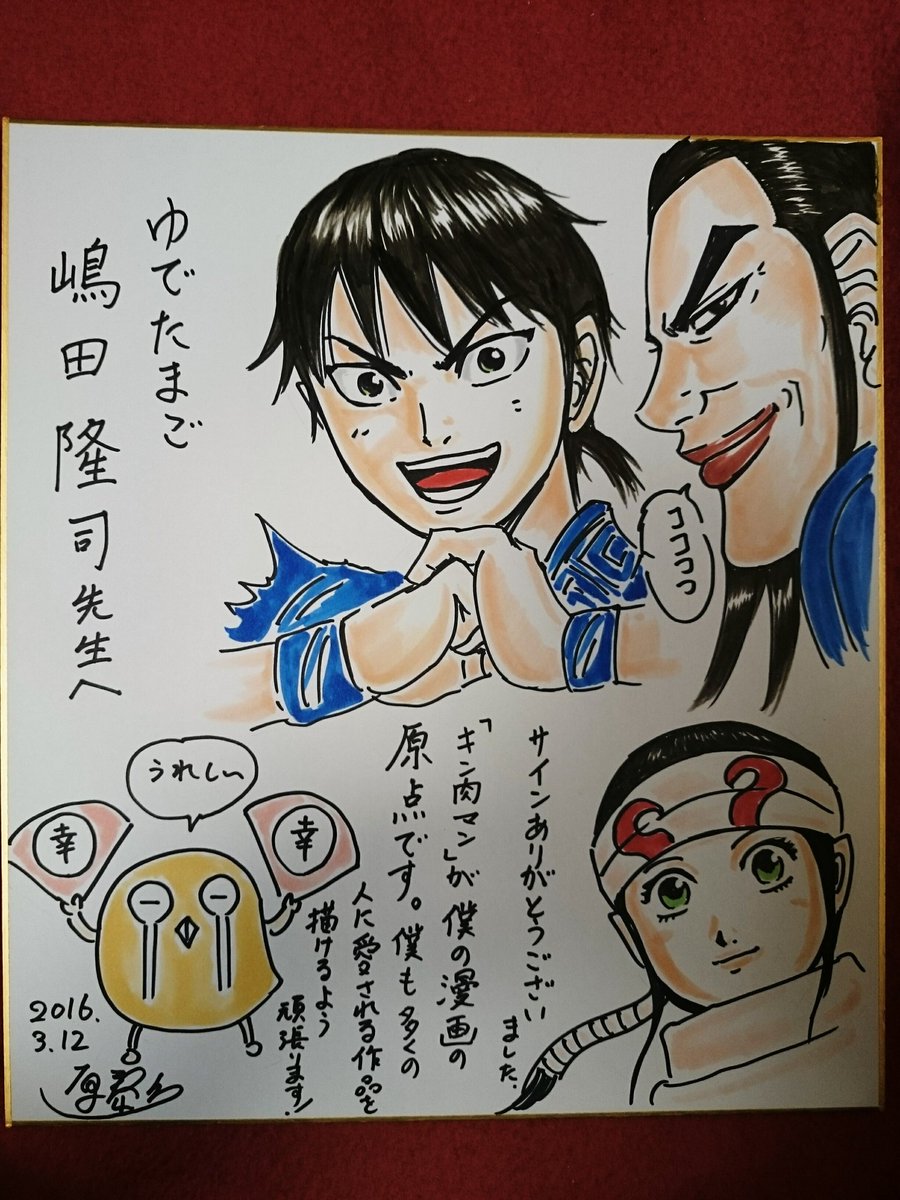 ゆでたまご
嶋田隆司先生へ
ココココっ
サインありがとうござい
ました。
「キン肉マン」が僕の漫画の
原点です。僕も多くの
人に愛される作品を
描けるよう
頑張ります!
うれしい
幸
幸
2016.
3.12
原泰久